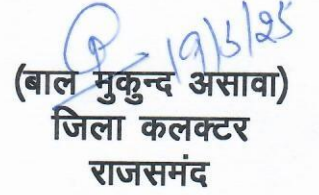 19/5/25
(बाल मुकुन्द असावा)
जिला कलक्टर
राजसमंद